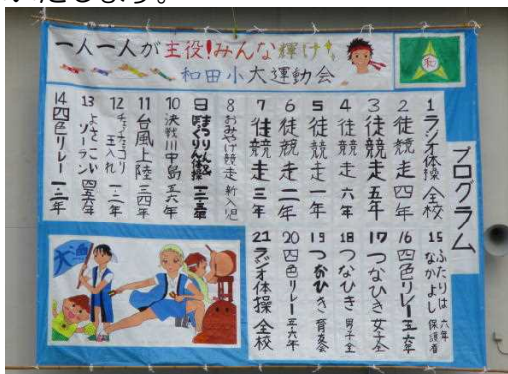 いたします。
一人一人が主役!みんな輝け
和田小大運動会
和
プログラム
1 ラジオ体操 全校
2 徒競走 四年
3 徒競走 五年
4 徒競走 六年
5 徒競走 一年
6 徒競走 二年
7 徒競走 三年
8 おみやげ競走 新入児
9
10 決戦川中島 五六年
11 台風上陸 三四年
12 チェッコリ玉入れ 一二年
13 よさこいソーラン 四五六年
14 四色リレー 一二三年
15 ふたりはなかよし 六年保護者
16 四色リレー 五六年
17 つなひき 女子全
18 つなひき 男子全
19 つなひき 育友会
20 四色リレー 五六年
21 ラジオ体操 全校
大漁